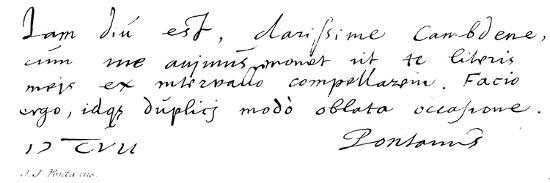 Iam diú est, clarissime Cambdene,
cúm me animús monet ut te literis
meis ex intervallo compellarem. Facio
ergo, idqz dúplicj modò oblata occasione.
Pontanús
J. J. Pontanus.